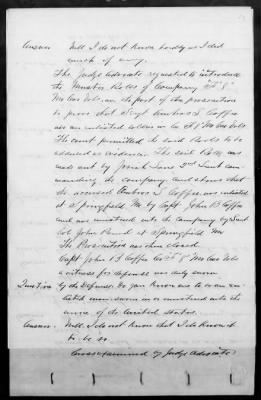 Answer Well I do not know hardly as I did
much if any.
The Judge Advocate requested to introduce
the Muster Rolls of Company "F" 8"
Mo Cav Vols. on the part of the prosecution
to prove that Srgt Ambros S Coffee
was an enlisted soldier in Co F 8" Mo Cav Vols.
The court permitted the said Rolls to be
adduced as evidence. The said Rolls was
made out by Lane 2nd Lieut com
manding the company and shows that
the accused Ambros S Coffee was enlisted
at Springfield Mo by Capt. John B Coffee
and was mustered into the Company by Lieut
Col John at Springfield Mo
The Prosecution was then closed.
Capt John B Coffee Co "F" 8" Mo Cav Vols
a witness for defense was duly sworn
Question by the Defense. Do you know me to be an en-
listed man sworn in or mustered into the
service of the United States.
Answer. Well I do not know that I do know it
to be so
Cross examined by Judge Advocate